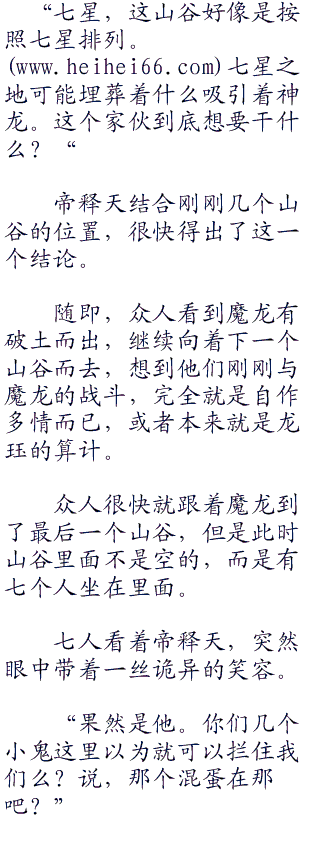 “七星，这山谷好像是按
照七星排列。
(www.heihei66.com)七星之
地可能埋葬着什么吸引着神
龙。这个家伙到底想要干什
么？“
帝释天结合刚刚几个山
谷的位置，很快得出了这一
个结论。
随即，众人看到魔龙有
破土而出，继续向着下一个
山谷而去，想到他们刚刚与
魔龙的战斗，完全就是自作
多情而已，或者本来就是龙
珏的算计。
众人很快就跟着魔龙到
了最后一个山谷，但是此时
山谷里面不是空的，而是有
七个人坐在里面。
七人看着帝释天，突然
眼中带着一丝诡异的笑容。
“果然是他。你们几个
小鬼这里以为就可以拦住我
们么？说，那个混蛋在那
吧？”